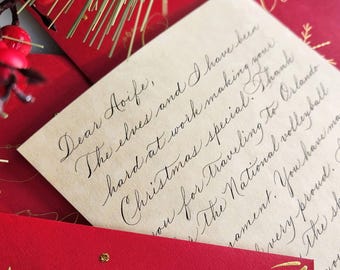 Dear Aoife,
The elves and I have been
hard at work making your
Christmas special. Thank
you for traveling to Orlando
the National volleyball
nament. You have ma
very proud.
the s